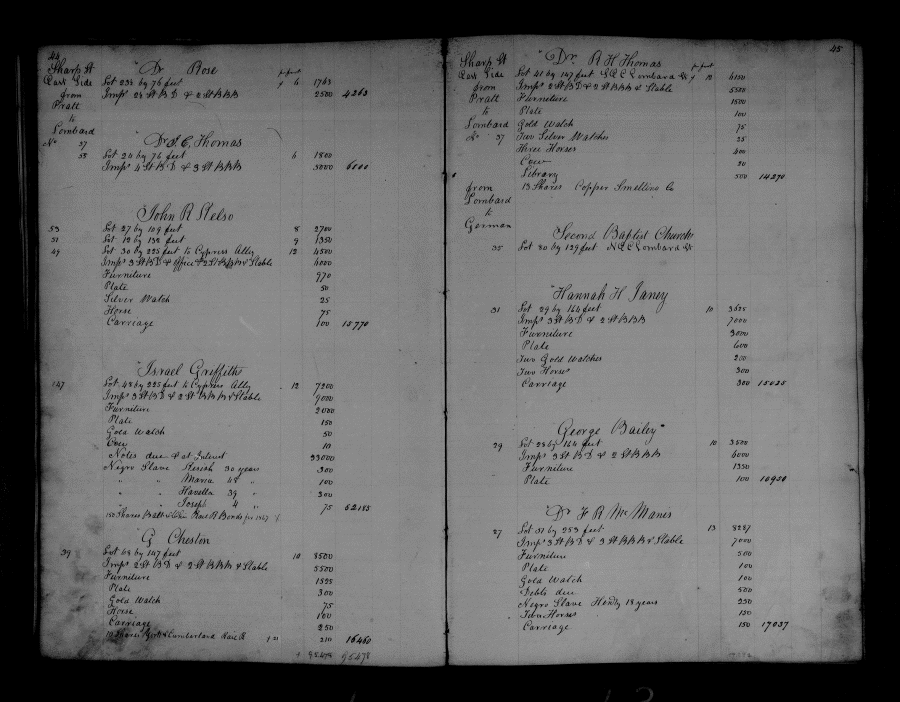 44
Sharp St
East Side
from
Pratt
to
Lombard
Dr Rose
p foot
Lot 23½ by 76 feet 6 1763
Imps 2½ St B D & 2 St B BB 2500 4263
No 57
Dr S. C. Thomas
55 Lot 24 by 76 feet 6 1800
Imps 4 St B D & 3 St B BB 5000 6000
John R Kelso
53 Lot 27 by 109 feet 8 2700
51 Lot 12 by 132 feet 9 1350
49 Lot 30 by 225 feet to Cypress Ally 12 4500
Imps 3 St B D & Office & 2 St B BB & Stable 6000
Furniture 970
Plate 50
Silver Watch 25
Horse 75
Carriage 100 15770
Israel Griffiths
47 Lot 48 by 225 feet to Cypress Ally 12 7200
Imps 3 St B D & 2 St B BB & Stable 9000
Furniture 2000
Plate 150
Gold Watch 50
Cow 10
Notes due & at Interest 33000
Negro Slave Kesiah 30 years 300
" " Maria 48 " 100
" " Havella 39 " 300
" " Joseph 4 " 75 52185
150 Shares Balt & Rail R Bonds for 1867
G Cheston
39 Lot 68 by 147 feet 10 8500
Imps 2 St B D & 2 St B BB & Stable 5500
Furniture 1525
Plate 300
Gold Watch 75
Horse 100
Carriage 250
Shares York & Cumberland Rail R 210 16460
95478 95478
45
Sharp St
East Side
from
Pratt
to
Lombard
No 57
Dr R H Thomas
p foot
Lot 41 by 147 feet S E C Lombard St 10 4100
Imps 2 St B D & 2 St B BB & Stable 5500
Furniture 1500
Plate 100
Gold Watch 75
Two Silver Watches 25
Three Horses 400
Cow 20
Library 500 14270
13 Shares Copper Smelting Co
from
Lombard
to
German
Second Baptist Church
35 Lot 80 by 129 feet N E C Lombard St
Hannah H Janey
31 Lot 29 by 164 feet 10 3625
Imps 3 St B D & 2 St B BB 7000
Furniture 3000
Plate 600
Two Gold Watches 200
Two Horses 300
Carriage 300 15025
George Bailey
29 Lot 28 by 164 feet 10 3500
Imps 3 St B D & 2 St B BB 6000
Furniture 1350
Plate 100 10950
Dr F R McManes
27 Lot 51 by 253 feet 13 8287
Imps 3 St B D & 3 St B BB & Stable 7000
Furniture 500
Plate 100
Gold Watch 100
Debts due 500
Negro Slave Henry 18 years 250
Two Horses 150
Carriage 150 17037